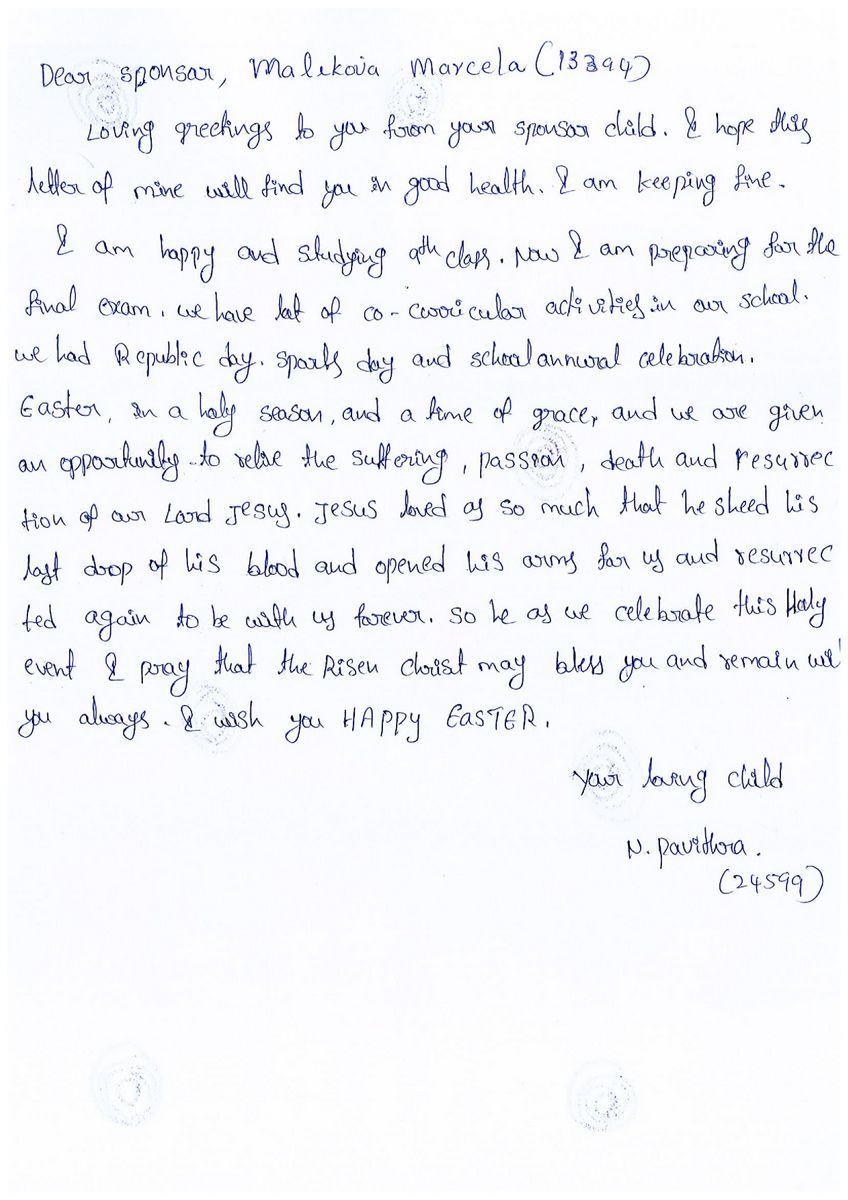 Dear sponsar, Malikova Marcela (13394)
Loving greetings to you from your sponsar child. I hope this
letter of mine will find you in good health. I am keeping fine.
I am happy and studying 9th class. Now I am preparing for the
final exam. we have lot of co-curricular activities in our school.
we had Republic day. sports day and school annural celebration.
Easter, in a holy season, and a time of grace, and we are given
an opportunity to relive the suffering, passion, death and resurrec
tion of our Lord Jesus. Jesus loved as so much that he sheed his
last drop of his blood and opened his arms for us and resurrec
ted again to be with us forever. so he as we celebrate this Holy
event I pray that the Risen christ may bless you and remain wit
you always. I wish you HAPPY EASTER.
your loving child
N. Pavithra.
(24599)